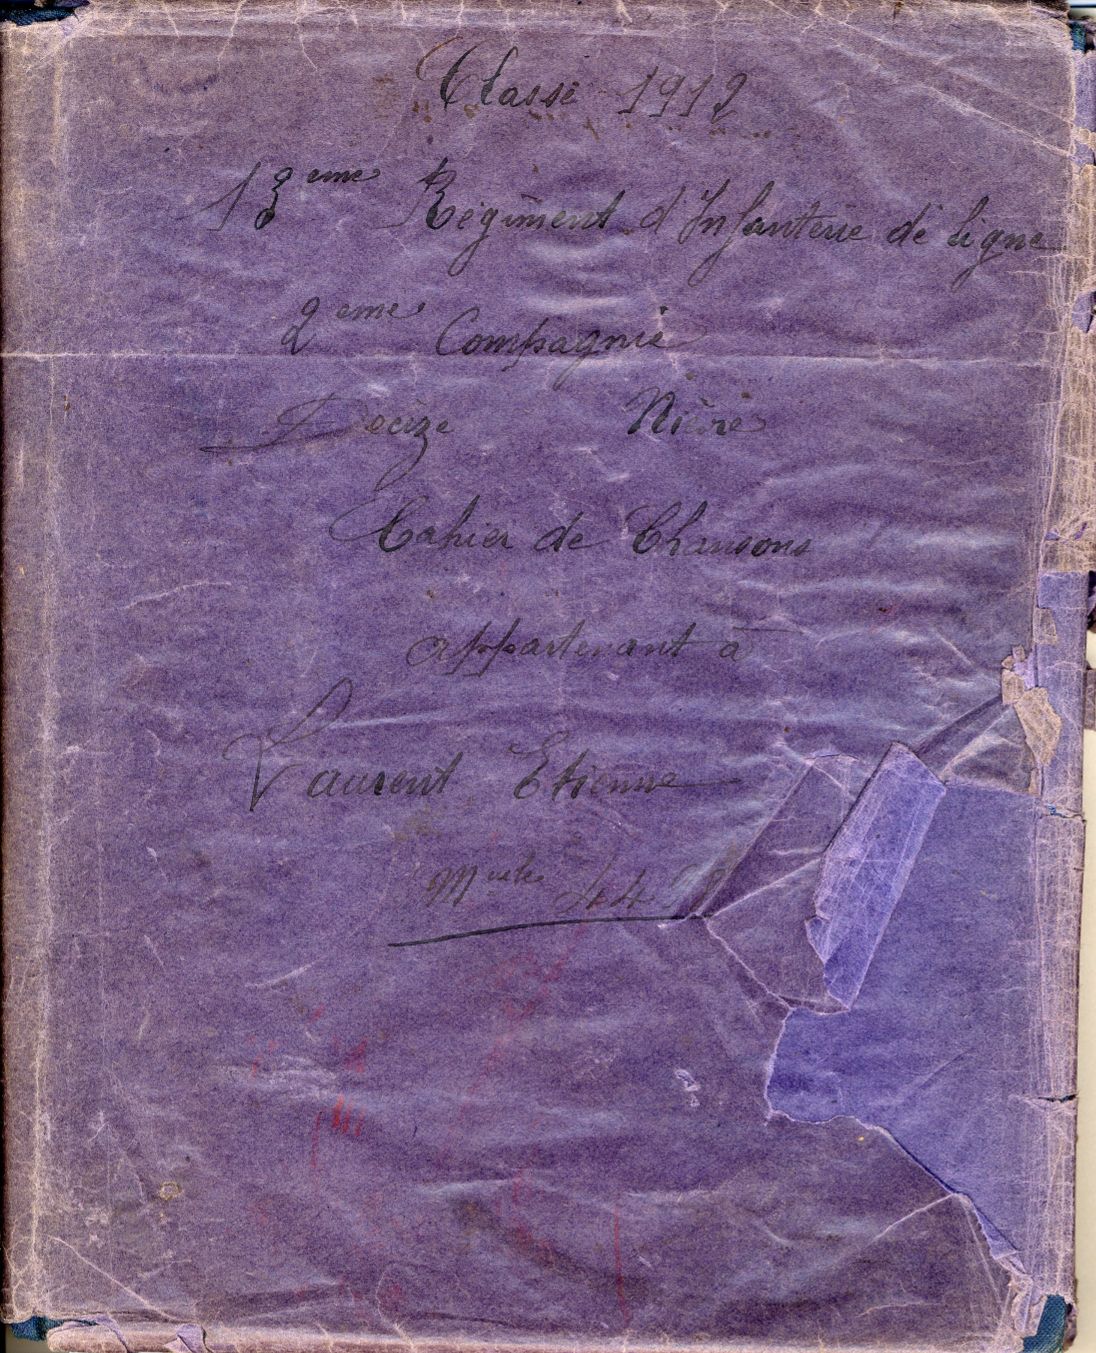 Classe 1912
13eme Régiment d'Infanterie de Ligne
2eme Compagnie
Decize Nièvre
Cahier de Chansons
appartenant à
Laurent Etienne
Mcule